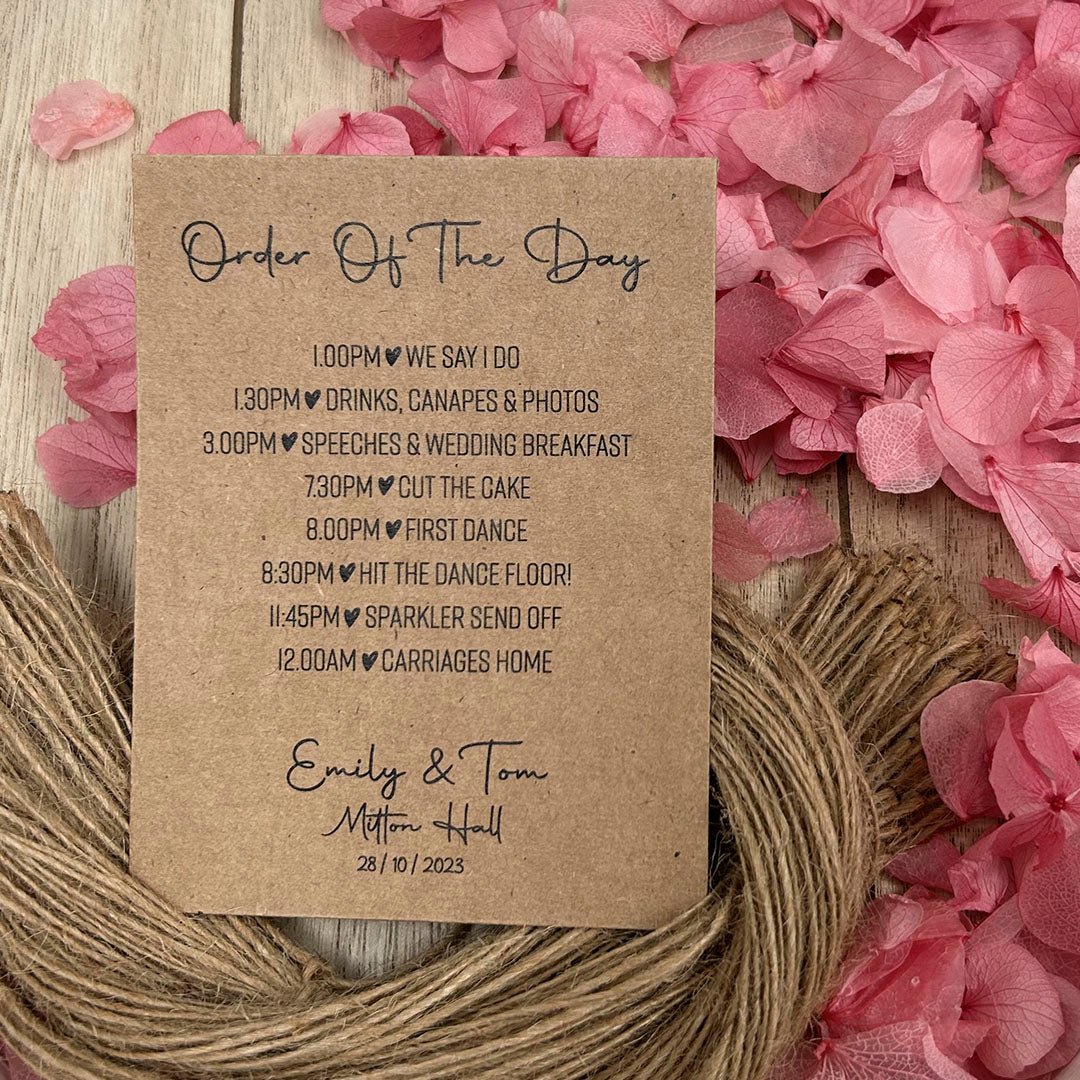 Order Of The Day
1.00PM ♥ WE SAY I DO
1.30PM ♥ DRINKS, CANAPES & PHOTOS
3.00PM ♥ SPEECHES & WEDDING BREAKFAST
7.30PM ♥ CUT THE CAKE
8.00PM ♥ FIRST DANCE
8:30PM ♥ HIT THE DANCE FLOOR!
11:45PM ♥ SPARKLER SEND OFF
12.00AM ♥ CARRIAGES HOME
Emily & Tom
Mitton Hall
28 / 10 / 2023